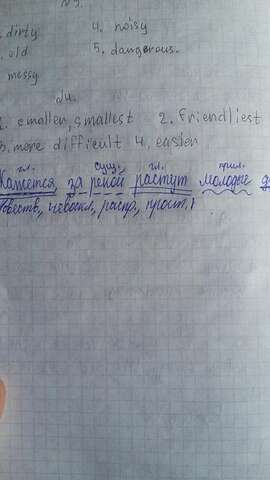 №3.
dirty 4. noisy
old 5. dangerous.
messy
№4.
1. smaller, smallest 2. friendliest
3. more difficult 4. easier
гл. сущ. гл. прил.
Кажется, за рекой растут молодые д
(повеств., невоскл., распр., прост.)